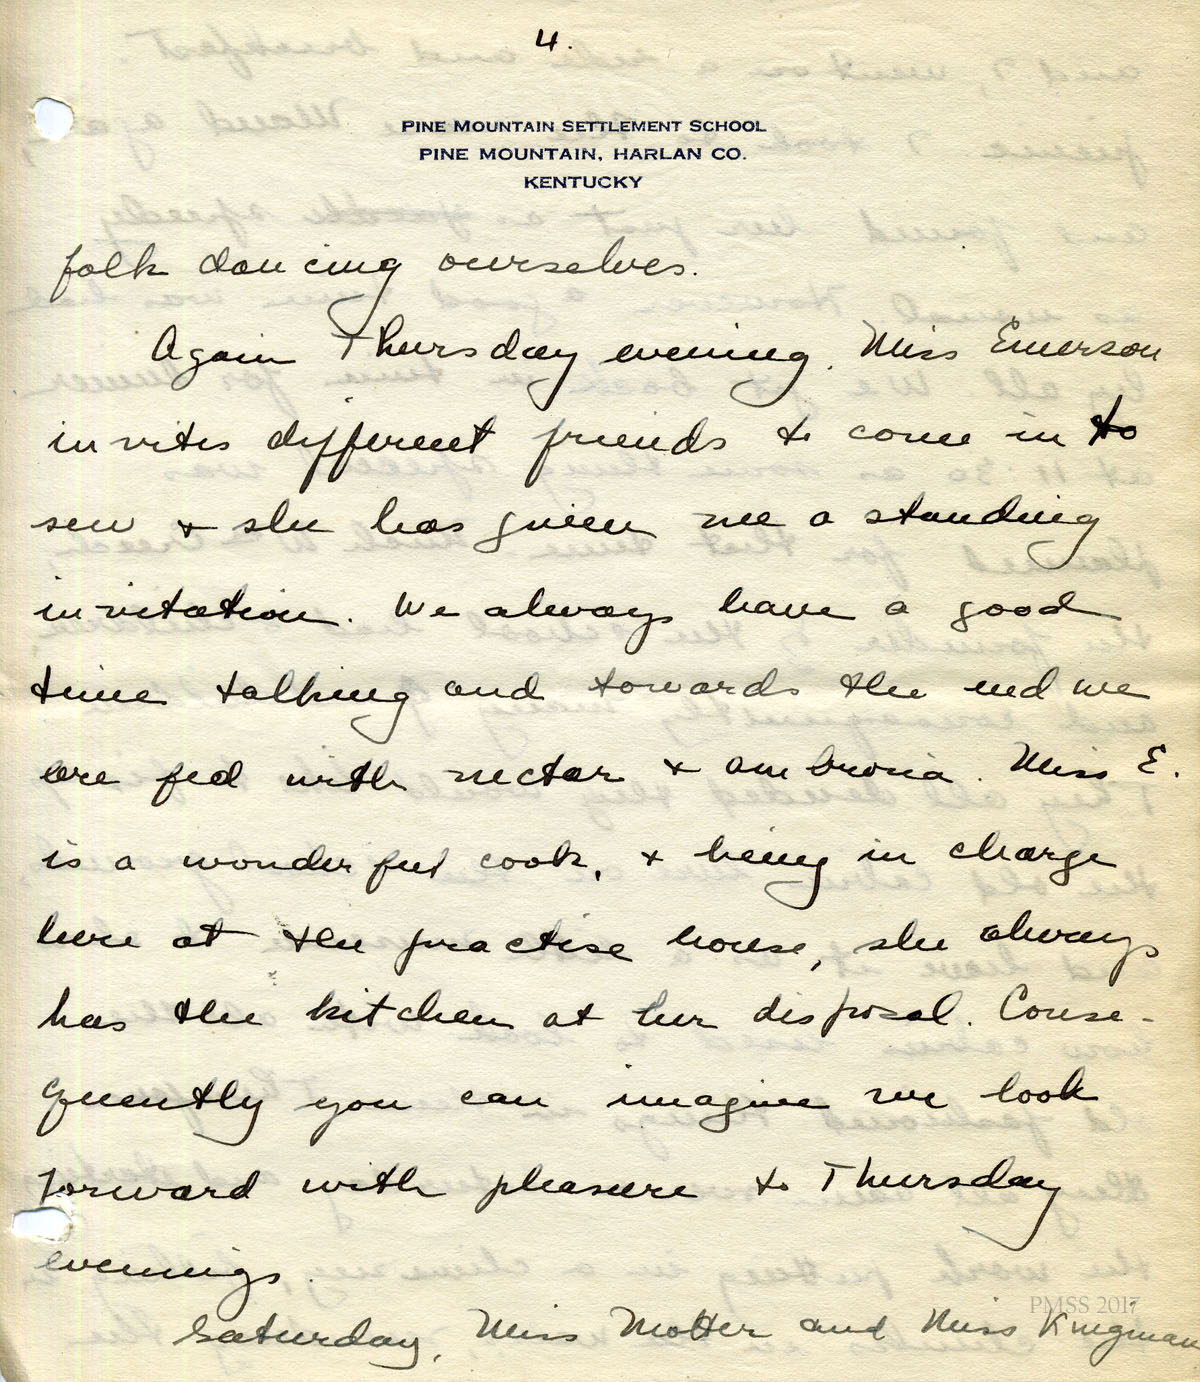 4.
PINE MOUNTAIN SETTLEMENT SCHOOL
PINE MOUNTAIN, HARLAN CO.
KENTUCKY
folk dancing ourselves.
Again Thursday evening, Miss Emerson
invites different friends to come in to
sew & she has given me a standing
invitation. We always have a good
time talking and towards the end we
are fed with nectar & ambrosia. Miss E.
is a wonderful cook, & being in charge
here at the practise house, she always
has the kitchen at her disposal. Conse-
quently you can imagine we look
forward with pleasure to Thursday
evenings.
Saturday, Miss Motter and Miss Kingman
PMSS 2017